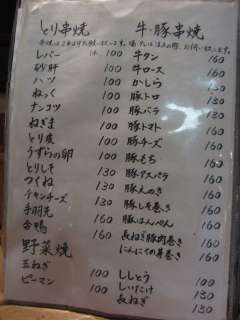 とり串焼
レバー 1本 100
砂肝 100
ハツ 100
ねっく 100
ナンコツ 100
ねぎま 100
とり皮 100
うずらの卵 100
とりしそ 130
つくね 130
チキンチーズ 130
手羽先 160
合鴨 160
野菜焼
玉ねぎ 100
ピーマン 100
牛・豚串焼
牛タン 160
牛ロース 160
かしら 100
豚トロ 100
豚バラ 100
豚トマト 160
豚チーズ 160
豚もち 160
豚アスパラ 160
豚えのき 160
豚しそ巻き 160
豚はんぺん 160
長ねぎ豚肉巻き 160
にんにくの芽巻き 160
ししとう 100
しいたけ 130
長ねぎ 130